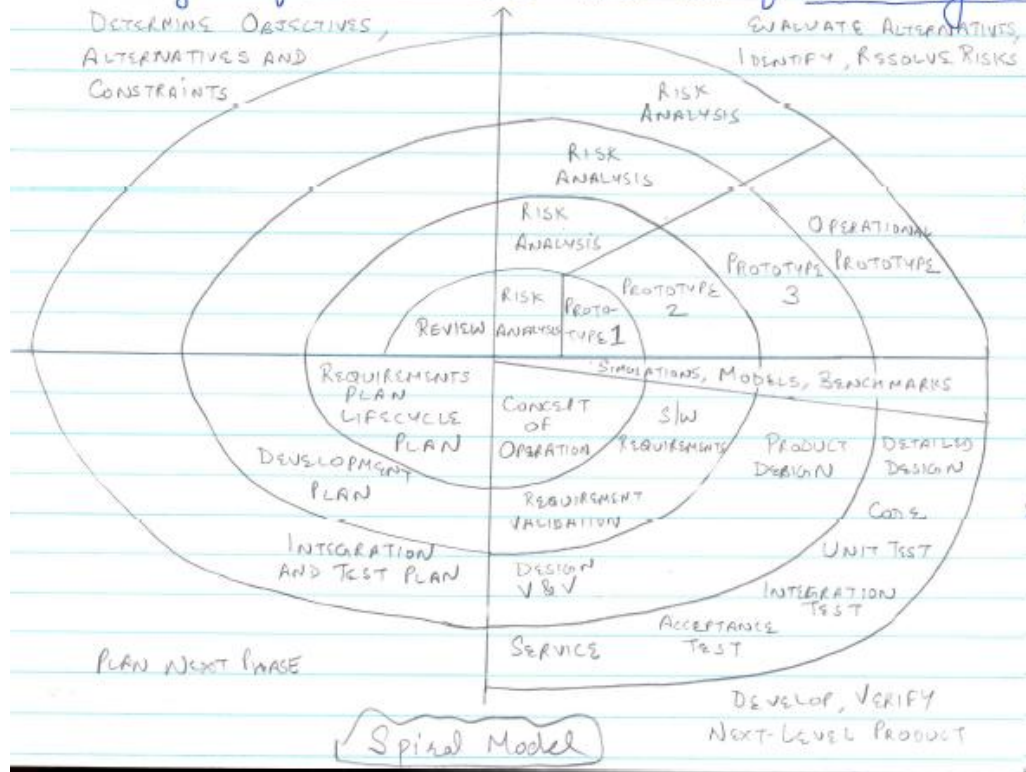 DETERMINE OBJECTIVES,
ALTERNATIVES AND
CONSTRAINTS
EVALUATE ALTERNATIVES,
IDENTIFY, RESOLVE RISKS
RISK
ANALYSIS
RISK
ANALYSIS
RISK
ANALYSIS
RISK
ANALYSIS
REVIEW
PROTO-
TYPE 1
PROTOTYPE
2
PROTOTYPE
3
OPERATIONAL
PROTOTYPE
SIMULATIONS, MODELS, BENCHMARKS
REQUIREMENTS
PLAN
LIFECYCLE
PLAN
DEVELOPMENT
PLAN
INTEGRATION
AND TEST PLAN
CONCEPT
OF
OPERATION
S/W
REQUIREMENTS
PRODUCT
DESIGN
DETAILED
DESIGN
REQUIREMENT
VALIDATION
CODE
DESIGN
V & V
UNIT TEST
INTEGRATION
TEST
ACCEPTANCE
TEST
SERVICE
PLAN NEXT PHASE
DEVELOP, VERIFY
NEXT-LEVEL PRODUCT
Spiral Model